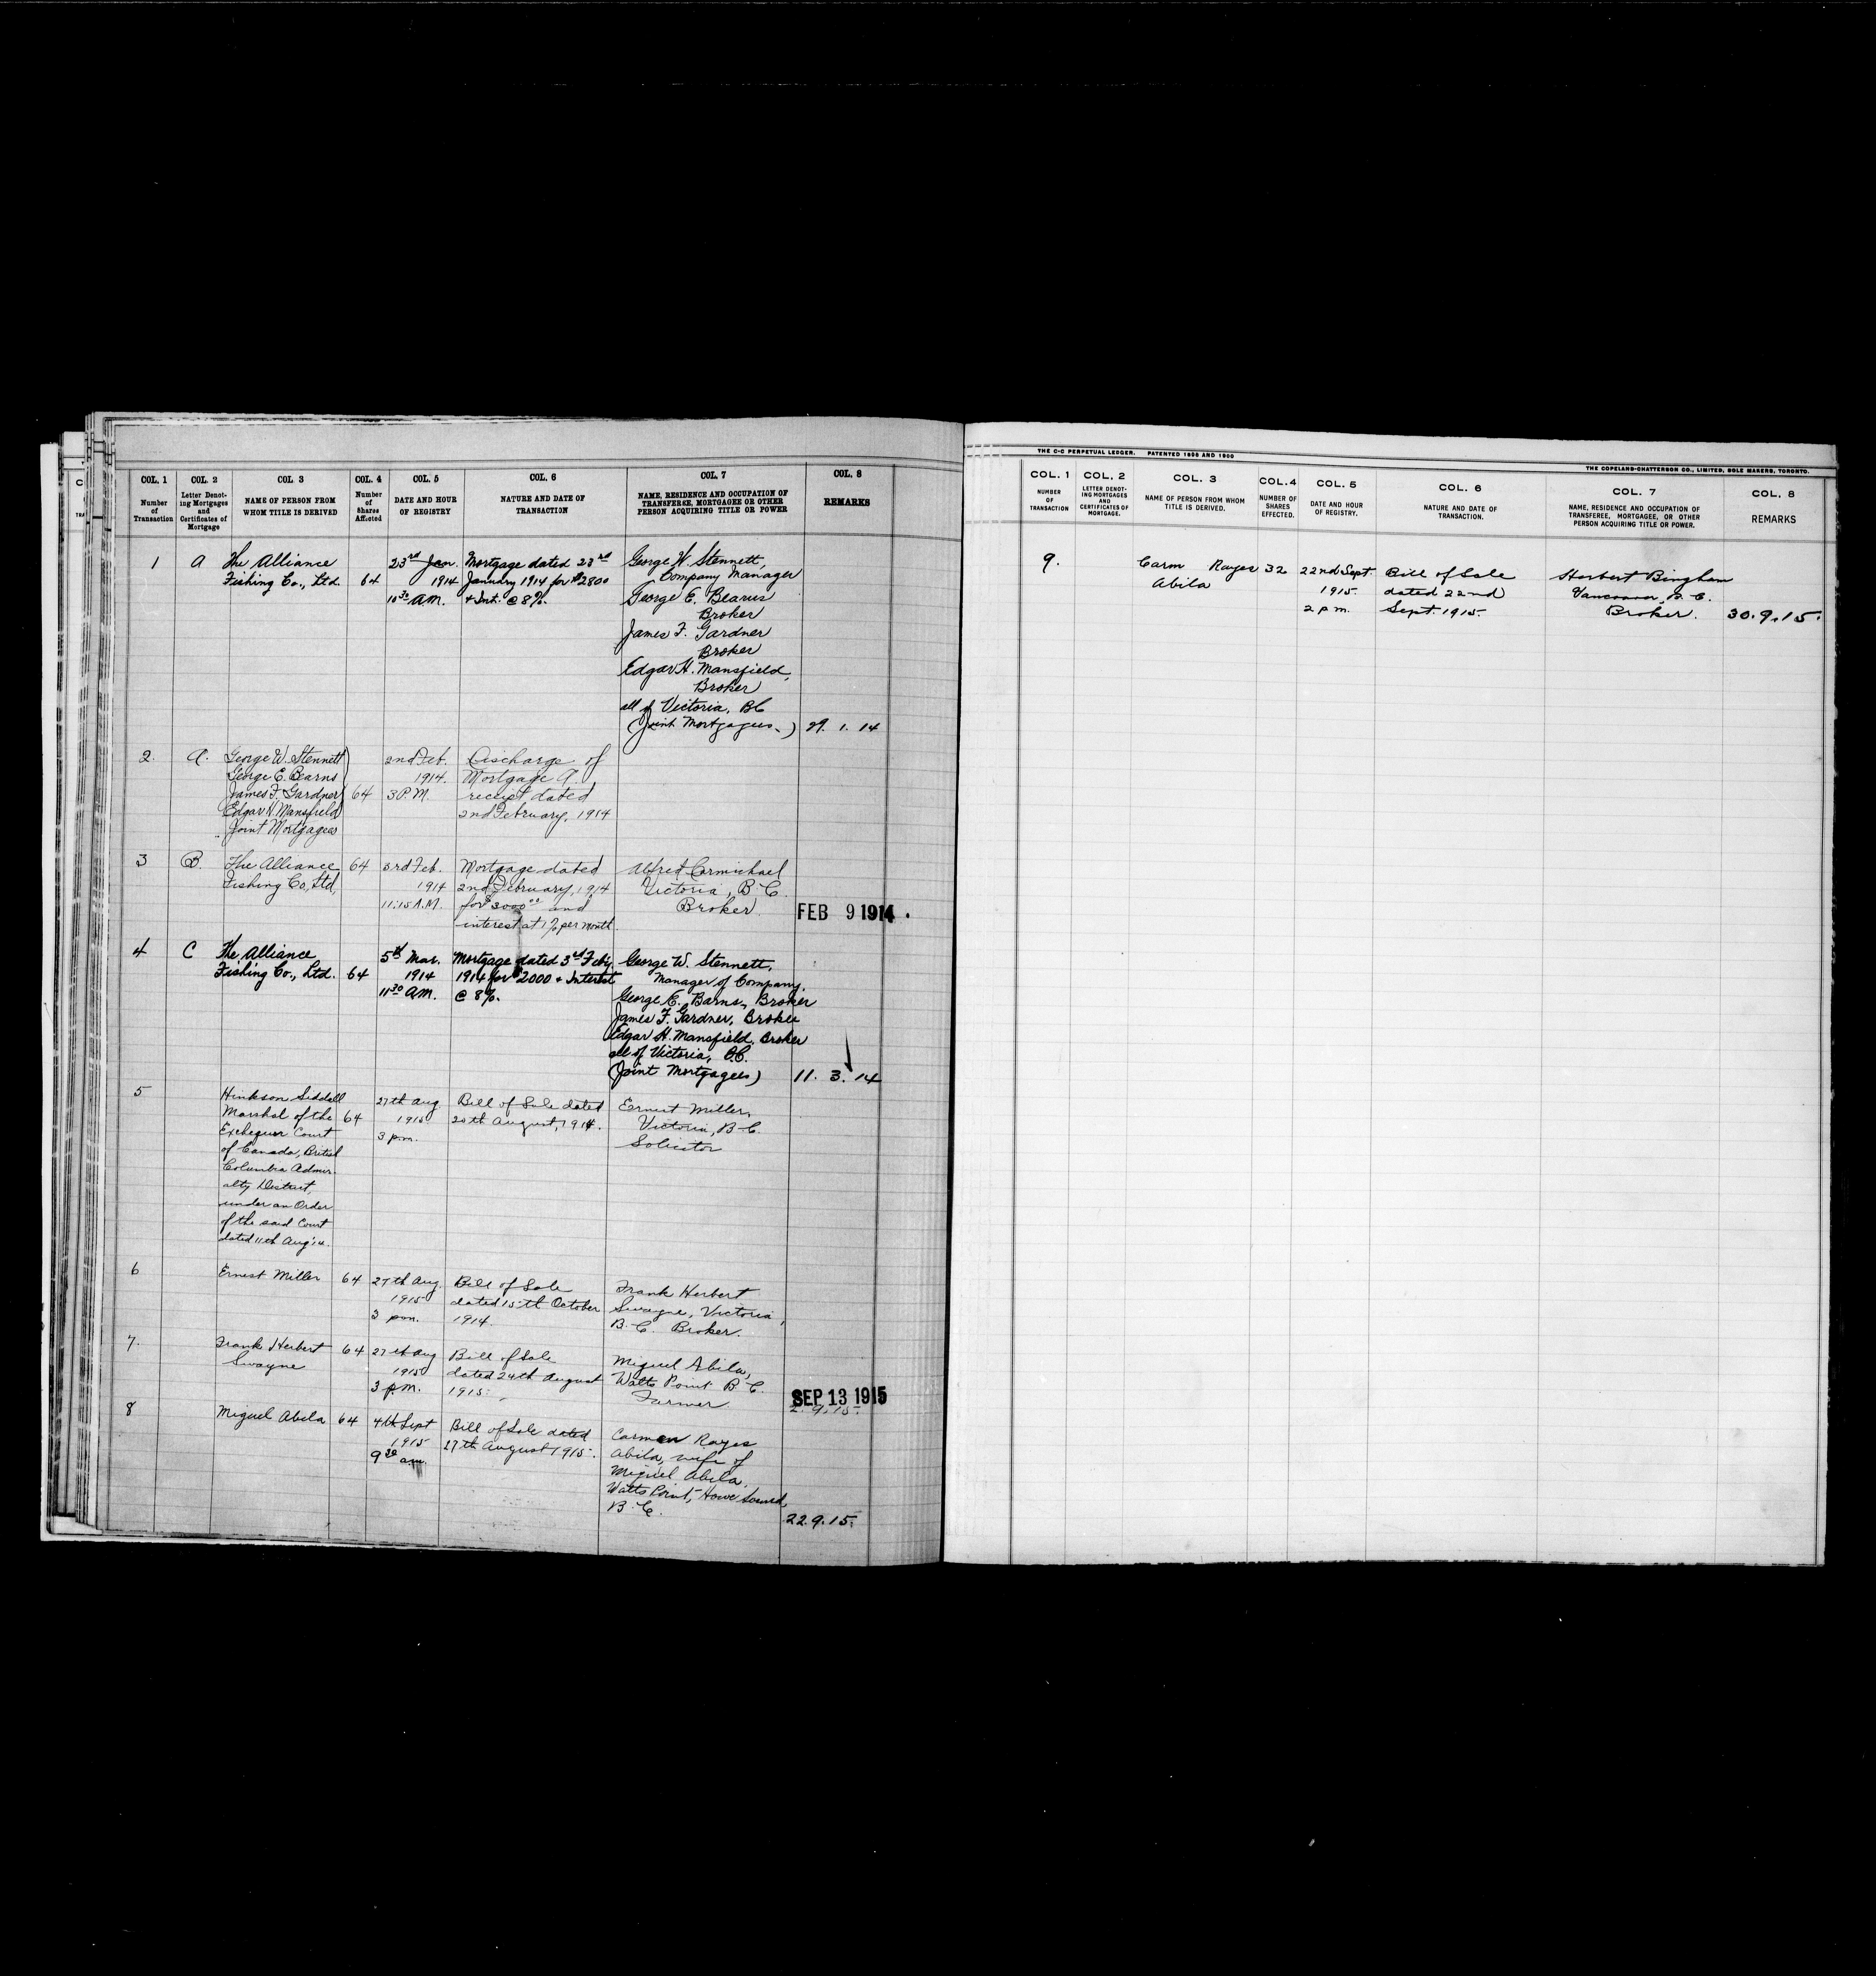 COL. 1 COL. 2 COL. 3 COL. 4 COL. 5 COL. 6 COL. 7 COL. 8
Number of Transaction
Letter Denot-
ing Mortgages
and
Certificates of
Mortgage
NAME OF PERSON FROM
WHOM TITLE IS DERIVED
Number
of
Shares
Affected
DATE AND HOUR
OF REGISTRY
NATURE AND DATE OF
TRANSACTION
NAME, RESIDENCE AND OCCUPATION OF
TRANSFEREE, MORTGAGEE OR OTHER
PERSON ACQUIRING TITLE OR POWER
REMARKS
1 A The Alliance
Fishing Co., Ltd. 64
23rd Jan.
1914
10 30 A.M.
Mortgage dated 23rd
January 1914 for $2800
& Int. @ 8%.
George W. Stennett,
Company Manager
George E. Bearns
Broker
James F. Gardner
Broker
Edgar H. Mansfield,
Broker
all of Victoria, BC
(Joint Mortgagees.)
29. 1. 14
2. A. George W. Stennett
George E. Bearns
James F. Gardner 64
Edgar H. Mansfield
Joint Mortgagees
2nd Feb.
1914.
3 P.M.
Discharge of
Mortgage A.
receipt dated
2nd February, 1914
3 B. The Alliance 64
Fishing Co, Ltd,
3rd Feb.
1914
11:15 A.M.
Mortgage dated
2nd February, 1914
for $3000 00 and
interest at 1% per month.
Alfred Carmichael
Victoria, B.C.
Broker.
FEB 9 1914.
4 C The Alliance
Fishing Co., Ltd. 64
5th Mar.
1914
11 30 AM.
Mortgage dated 3rd Feby
1914 for $2000 & Interest
@ 8%.
George W. Stennett,
Manager of Company.
George E. Barns, Broker
James F. Gardner, Broker
Edgar H. Mansfield, Broker
all of Victoria, B.C.
(Joint Mortgagees)
11. 3. 14
5 Hinkson Siddall
Marshal of the 64
Exchequer Court
of Canada, British
Columbia Admir-
alty District,
under an Order
of the said Court
dated 11th Aug'14.
27th Aug
1915
3 pm.
Bill of Sale dated
20th August, 1914.
Ernest Miller,
Victoria, B.C.
Solicitor
6 Ernest Miller 64
27th Aug.
1915
3 pm.
Bill of Sale
dated 15th October
1914.
Frank Herbert
Swayne, Victoria,
B.C. Broker.
7. Frank Herbert 64
Swayne
27th Aug
1915
3 p.m.
Bill of Sale
dated 24th August
1915.
Miguel Abila,
Watts Point B.C.
Farmer
SEP 13 1915
2. 9. 15.
8 Miguel Abila 64
4th Sept
1915
9 30 am.
Bill of Sale dated
27th August 1915.
Carmen Rayes
Abila, wife of
Miguel Abila,
Watts Point, Howe Sound,
B.C.
22.9.15.
THE C-C PERPETUAL LEDGER. PATENTED 1898 AND 1900
THE COPELAND-CHATTERSON CO., LIMITED, SOLE MAKERS, TORONTO.
COL. 1 COL. 2 COL. 3 COL. 4 COL. 5 COL. 6 COL. 7 COL. 8
NUMBER
OF
TRANSACTION
LETTER DENOT-
ING MORTGAGES
AND
CERTIFICATES OF
MORTGAGE.
NAME OF PERSON FROM WHOM
TITLE IS DERIVED.
NUMBER OF
SHARES
EFFECTED.
DATE AND HOUR
OF REGISTRY.
NATURE AND DATE OF
TRANSACTION.
NAME, RESIDENCE AND OCCUPATION OF
TRANSFEREE, MORTGAGEE, OR OTHER
PERSON ACQUIRING TITLE OR POWER.
REMARKS
9. Carm Rayes 32
Abila
22nd Sept.
1915.
2 p m.
Bill of Sale
dated 22nd
Sept. 1915.
Herbert Bingham
Vancouver, B.C.
Broker.
30.9.15.